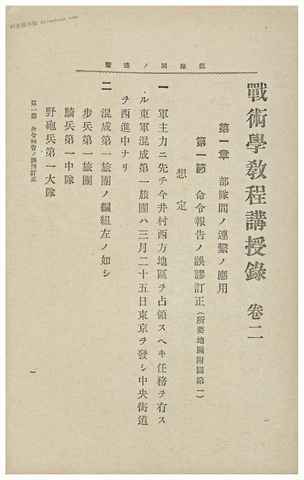 部隊間ノ連繫
戰術學敎程講授錄 卷二
第一章 部隊間ノ連繫ノ應用
第一節 命令報告ノ誤謬訂正(所要地圖附圖第一)
想定
一 軍主力ニ先チ今井村西方地區ヲ占領スヘキ任務ヲ有ス
ル東軍混成第一旅團ハ三月二十五日東京ヲ發シ中央街道
ヲ西進中ナリ
二 混成第一旅團ノ編組左ノ如シ
步兵第一旅團
騎兵第一中隊
野砲兵第一大隊
第一節 命令報告ノ誤謬訂正
一